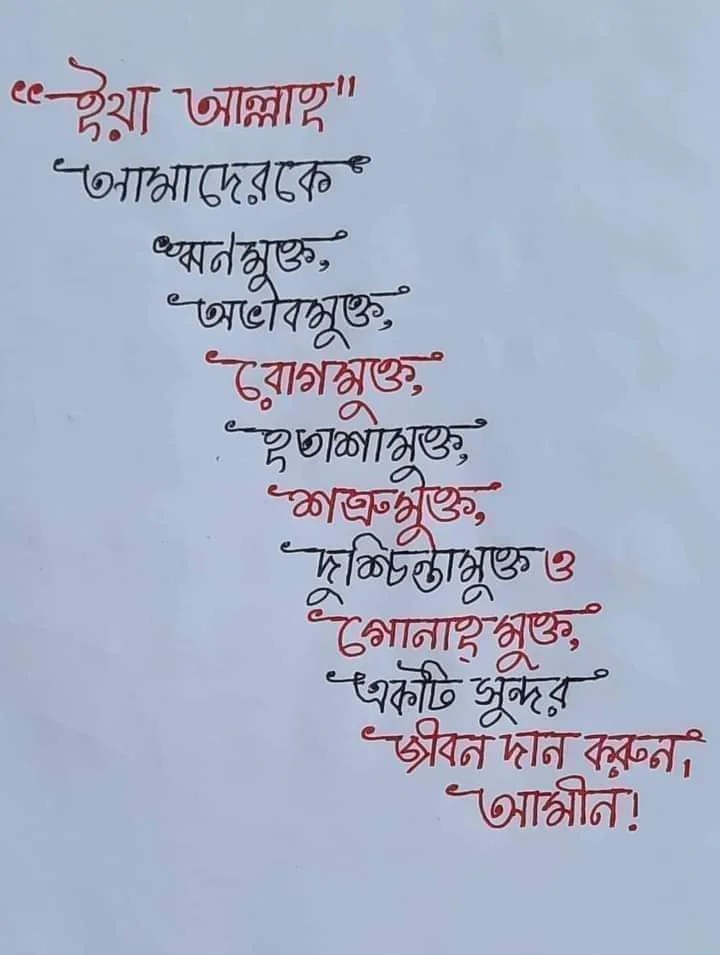 “ইয়া আল্লাহ"
আমাদেরকে
ঋনমুক্ত,
অভাবমুক্ত,
রোগমুক্ত,
হতাশামুক্ত,
শত্রুমুক্ত,
দুশ্চিন্তামুক্ত ও
গোনাহ্ মুক্ত,
একটি সুন্দর
জীবন দান করুন,
আমীন!